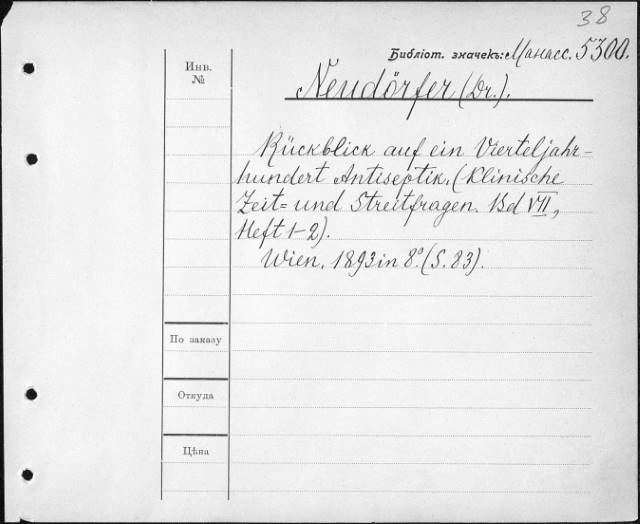 38
Библіот. значекъ: Манасс. 5300.
Инв.
№
Neudörfer (Dr.).
Rückblick auf ein Vierteljahr-
hundert Antiseptik. (Klinische
Zeit= und Streitfragen. Bd VII,
Heft 1-2).
Wien. 1893 in 8°. (S. 83).
По заказу
Откуда
Цѣна